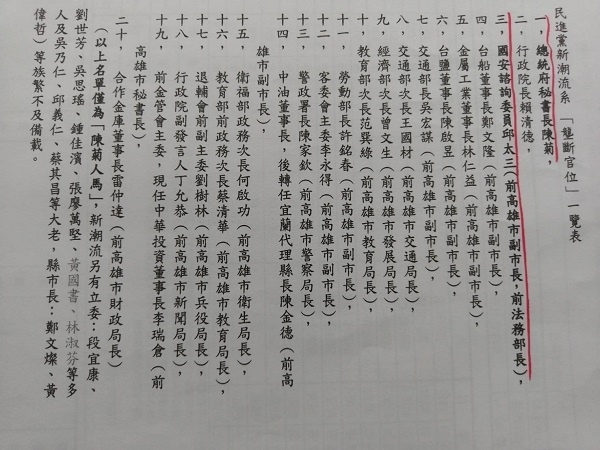 民進黨新潮流系「壟斷官位」一覽表
一、總統府秘書長陳菊，
二、行政院長賴清德，
三、國安諮詢委員邱太三（前高雄市副市長，前法務部長），
四、台船董事長鄭文隆（前高雄市副市長），
五、金屬工業董事長林仁益（前高雄市副市長），
六、台鹽董事長陳啟昱（前高雄市副市長），
七、交通部長吳宏謀（前高雄市副市長），
八、交通部次長王國材（前高雄市交通局長），
九、經濟部次長曾文生（前高雄市發展局長），
十、教育部次長范巽綠（前高雄市教育局長），
十一、勞動部長許銘春（前高雄市副市長），
十二、客委會主委李永得（前高雄市副市長），
十三、警政署長陳家欽（前高雄市警察局長），
十四、中油董事長，後轉任宜蘭代理縣長陳金德（前高
雄市副市長），
十五、衛福部政務次長何啟功（前高雄市衛生局長），
十六、教育部前政務次長蔡清華（前高雄市教育局長），
十七、退輔會前副主委劉樹林（前高雄市兵役局長），
十八、行政院副發言人丁允恭（前高雄市新聞局長），
十九、前金管會主委，現任中華投資董事長李瑞倉（前
高雄市秘書長），
二十、合作金庫董事長雷仲達（前高雄市財政局長）
（以上名單僅為「陳菊人馬」，新潮流另有立委：段宜康、
劉世芳、吳思瑤、鍾佳濱、張廖萬堅、黃國書、林淑芬等多
人及吳乃仁、邱義仁、蔡其昌等大老，縣市長：鄭文燦、黃
偉哲）等族繁不及備載。